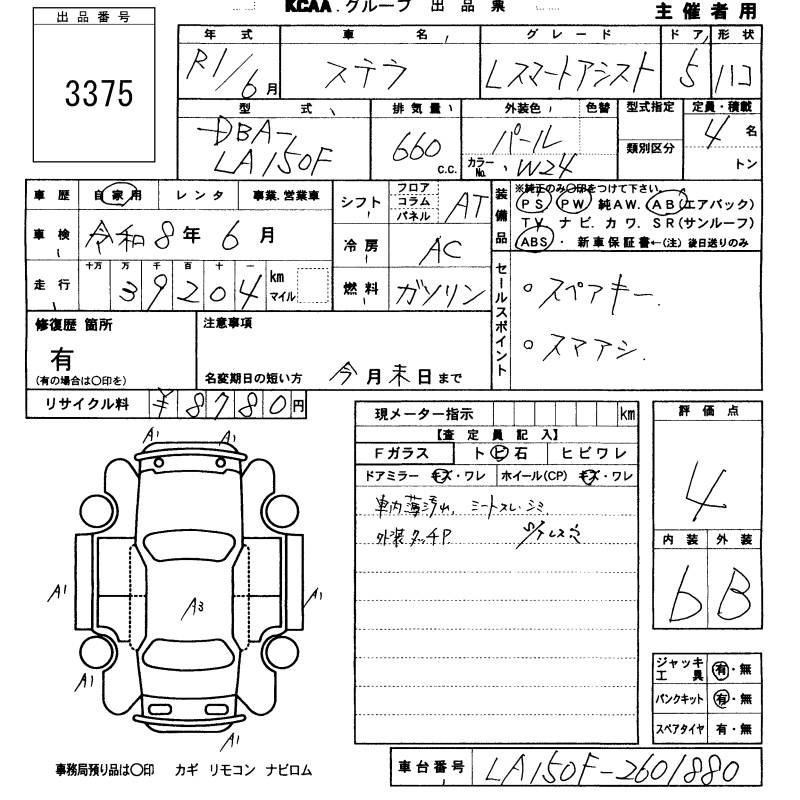 KCAA.グループ 出品票
主催者用
出品番号
3375
年式 車名 グレード ドア 形状
R1/6月 ステラ Lスマートアシスト 5 ハコ
型式 排気量 外装色 色替 型式指定 定員・積載
DBA-LA150F 660 c.c. パール カラーNo. W24 類別区分 4名 トン
車歴 自家用 レンタ 事業.営業車
車検 令和8年6月
走行 十万 万 千 百 十 一 km マイル
39204
シフト フロア コラム パネル AT
冷房 AC
燃料 ガソリン
装備品 ※純正のみ○印をつけて下さい。
PS PW 純AW. AB(エアバック)
TV ナビ. カワ. SR(サンルーフ)
ABS ・ 新車保証書←(注)後日送りのみ
セールスポイント
○スペアキー.
○スマアシ.
修復歴 箇所
有
(有の場合は○印を)
注意事項
名変期日の短い方 今月末日まで
リサイクル料 ¥8780円
現メーター指示 km
【査定員記入】
Fガラス トビ石 ヒビワレ
ドアミラー キズ・ワレ ホイール(CP) キズ・ワレ
車内薄汚れ, シートスレ.シミ.
外装タッチP.
評価点
4
内装 外装
b B
ジャッキ工具 有・無
パンクキット 有・無
スペアタイヤ 有・無
A1 A1
A1 A3 A1
A1
A1
事務局預り品は○印 カギ リモコン ナビロム
車台番号 LA150F-2601880